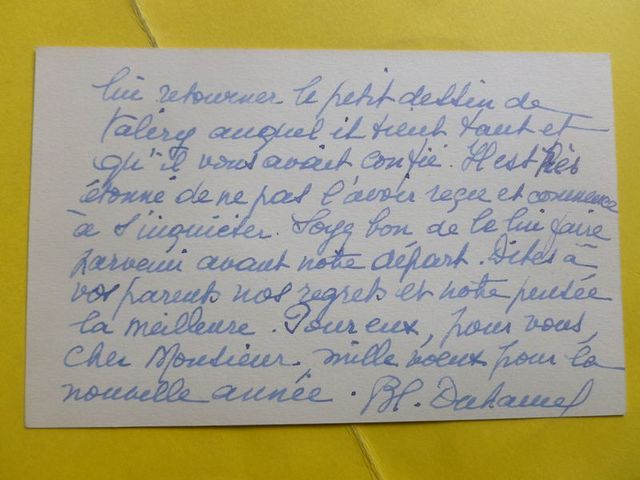 lui retourner le petit dessin de
Valéry auquel il tient tant et
qu'il vous avait confié. Il est très
étonné de ne pas l'avoir reçu et commence
à s'inquiéter. Soyez bon de le lui faire
parvenir avant notre départ. Dites à
vos parents nos regrets et notre pensée
la meilleure. Pour eux, pour vous,
cher Monsieur, mille vœux pour la
nouvelle année. Bl. Duhamel